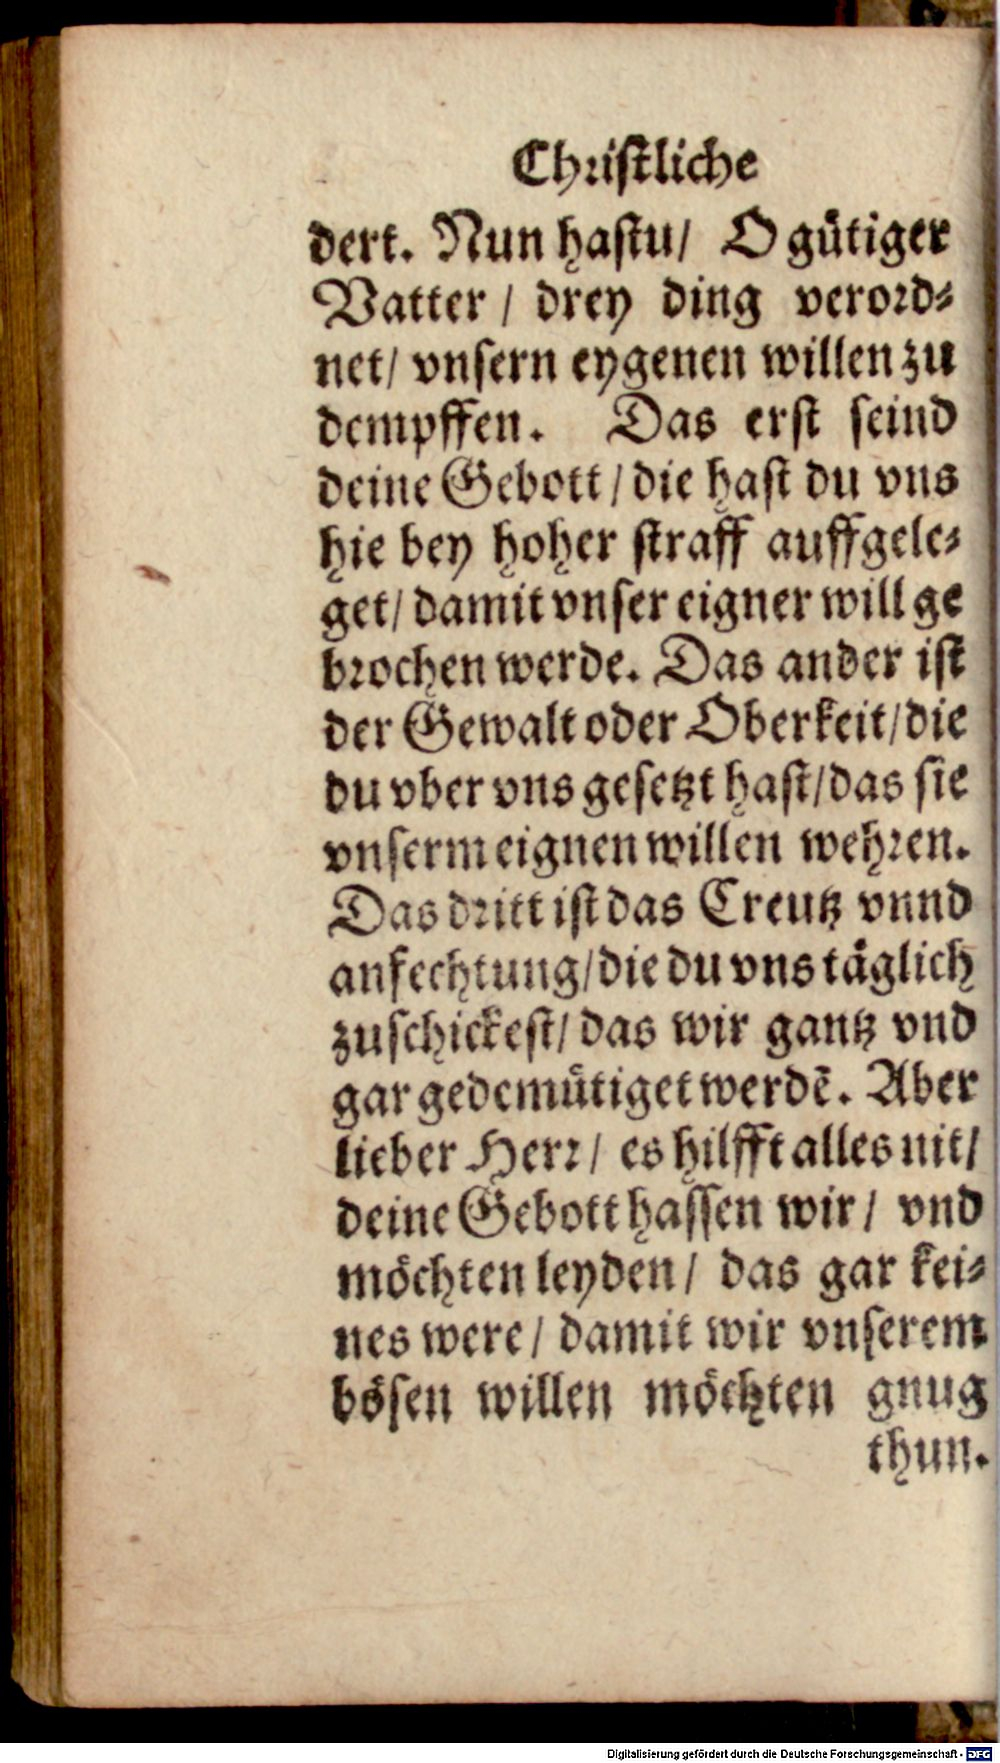 Christliche
dert. Nun hastu/ O gütiger
Vatter / drey ding verord-
net/ vnsern eygenen willen zu
dempffen. Das erst seind
deine Gebott / die hast du vns
hie bey hoher straff auffgele-
get/ damit vnser eigner will ge
brochen werde. Das ander ist
der Gewalt oder Oberkeit/ die
du vber vns gesetzt hast/ das sie
vnserm eignen willen wehren.
Das dritt ist das Creutz vnnd
anfechtung/ die du vns täglich
zuschickest/ das wir gantz vnd
gar gedemütiget werdẽ. Aber
lieber Herr / es hilfft alles nit/
deine Gebott hassen wir / vnd
möchten leyden / das gar kei-
nes were / damit wir vnserem
bösen willen möchten gnug
thun.
Digitalisierung gefördert durch die Deutsche Forschungsgemeinschaft - DFG